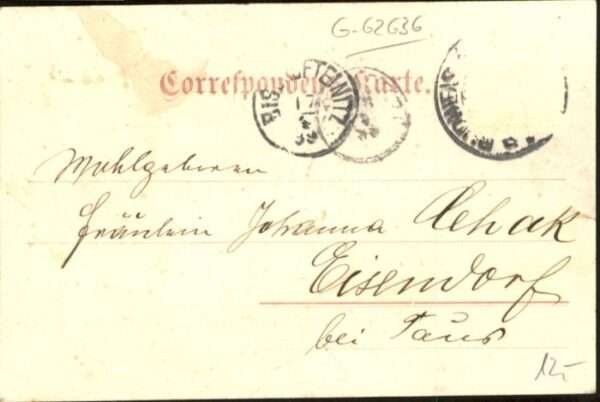 G-62636
Correspondenz-Karte.
BISCHOFTEINITZ
17
4
99
Wohlgeboren
Fräulein Johanna
Eisendorf
bei Taus
12,-